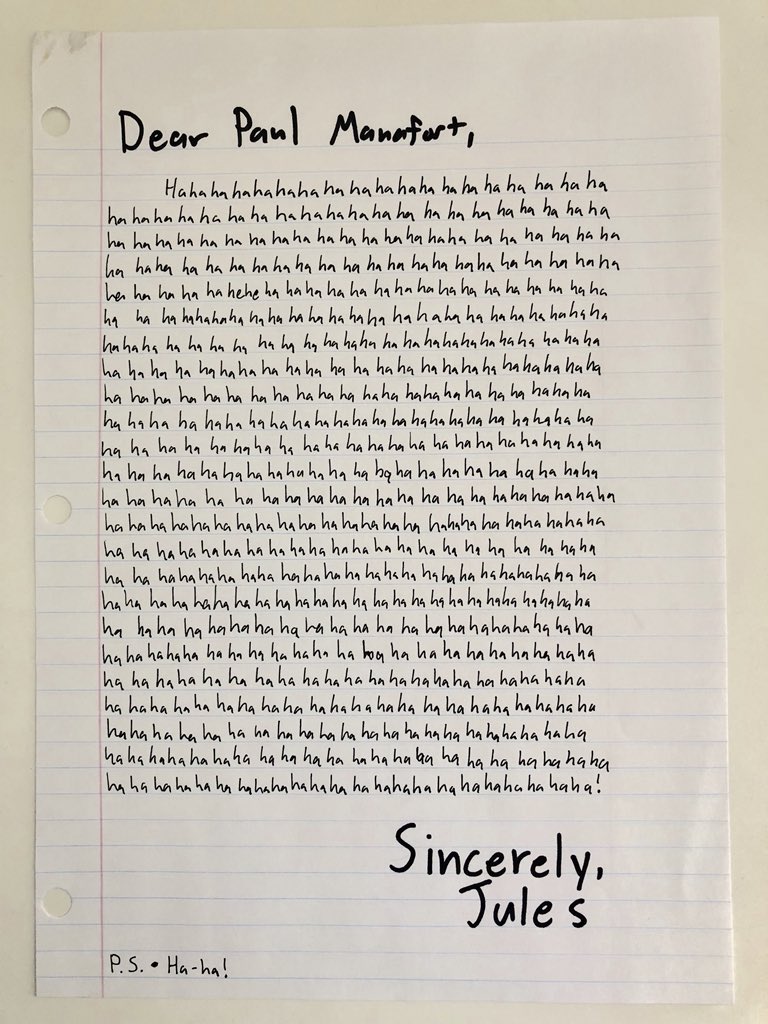 Dear Paul Manafort,
Hahahahahahaha ha hahahahaha hahaha ha ha ha ha
hahahahaha hahaha hahahahahahaha ha ha ha hahaha ha ha
ha hahahaha ha ha hahaha ha ha hahahahaha ha ha ha ha ha ha
ha haha hahahahahahaha ha hahahahahahaha hahahahaha
ha ha ha ha hahehe ha hahahahahahahahaha ha ha ha ha haha
ha ha ha hahahaha hahahahahahaha hahahahahahahahahaha
hahahaha ha ha ha ha ha ha ha hahahaha hahahahahahaha hahaha
ha ha ha ha ha hahaha hahaha ha ha haha hahahahahahahahaha
ha haha ha ha ha ha ha ha hahahaha ha hahahahahaha ha hahaha
ha hahaha ha haha ha hahahahahahahahahahahaha hahaha ha
ha ha ha ha ha ha ha ha ha hahahahahaha ha hahahaha hahaha
ha ha ha ha hahahahahahahaha ha ha ha hahahaha ha ha haha
ha hahaha ha ha ha ha hahahahaha ha ha ha hahahahahahaha
ha hahahahahahahaha hahahahahahaha hahahaha hahahahaha
ha ha hahahahahahahaha hahahahaha ha ha ha ha ha ha haha
ha ha hahahaha haha hahahahahahaha hahaha hahahahaha ha
haha ha ha hahahahahahahahaha hahahahahahahahahahahaha
ha haha ha hahahahaha ha hahaha ha ha hahahahahahahaha
hahahahaha ha ha ha hahaha ha ha ha ha hahahahahaha haha
ha hahahaha ha hahahahahahahahahahaha hahahahahaha
ha hahahaha hahahahaha hahahahahaha ha hahahahahahaha
hahahaha ha ha ha ha ha hahaha hahahahahahahahahahaha
hahahahahahaha hahahaha ha hahahaha ha ha ha ha hahahaha
ha hahahahaha hahahahahaha ha hahahahahahahahahahaha!
Sincerely,
Jules
P.S. • Ha-ha!